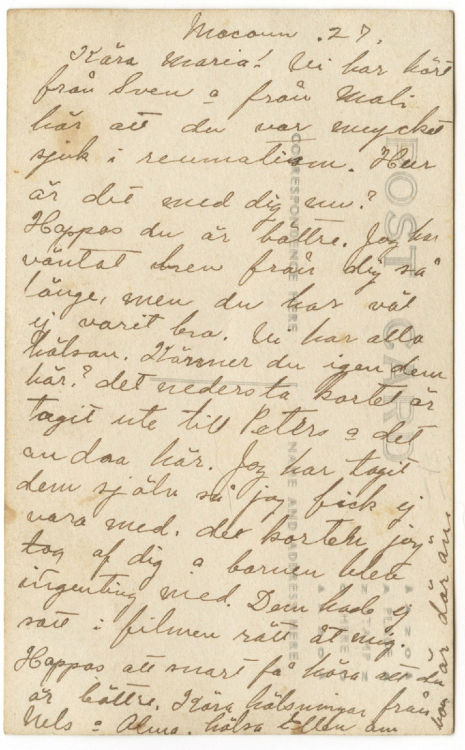 Macoun . 27.
Kära Maria! Vi har hört
från Sven o från Mali
här att du var mycket
sjuk i reumatism. Hur
är det med dig nu?
Hoppas du är bättre. Jag har
väntat brev från dig så
länge, men du har väl
ej varit bra. Vi har alla
hälsan. Känner du igen dem
här? det nedersta kortet är
tagit ute till Peters o det
andra här. Jag har tagit
dem själv så jag fick ej
vara med. det korten jag
tog af dig o barnen blev
ingenting med. Dem hade ej
satt i filmen rätt åt mig.
Hoppas att snart få höra att du
är bättre. Kära hälsningar från
Nels o Alma. hälsa Ellen om
hon är där än.
POST CARD
CORRESPONDENCE HERE
NAME AND ADDRESS HERE
AZO
PLACE
STAMP
HERE
AZO